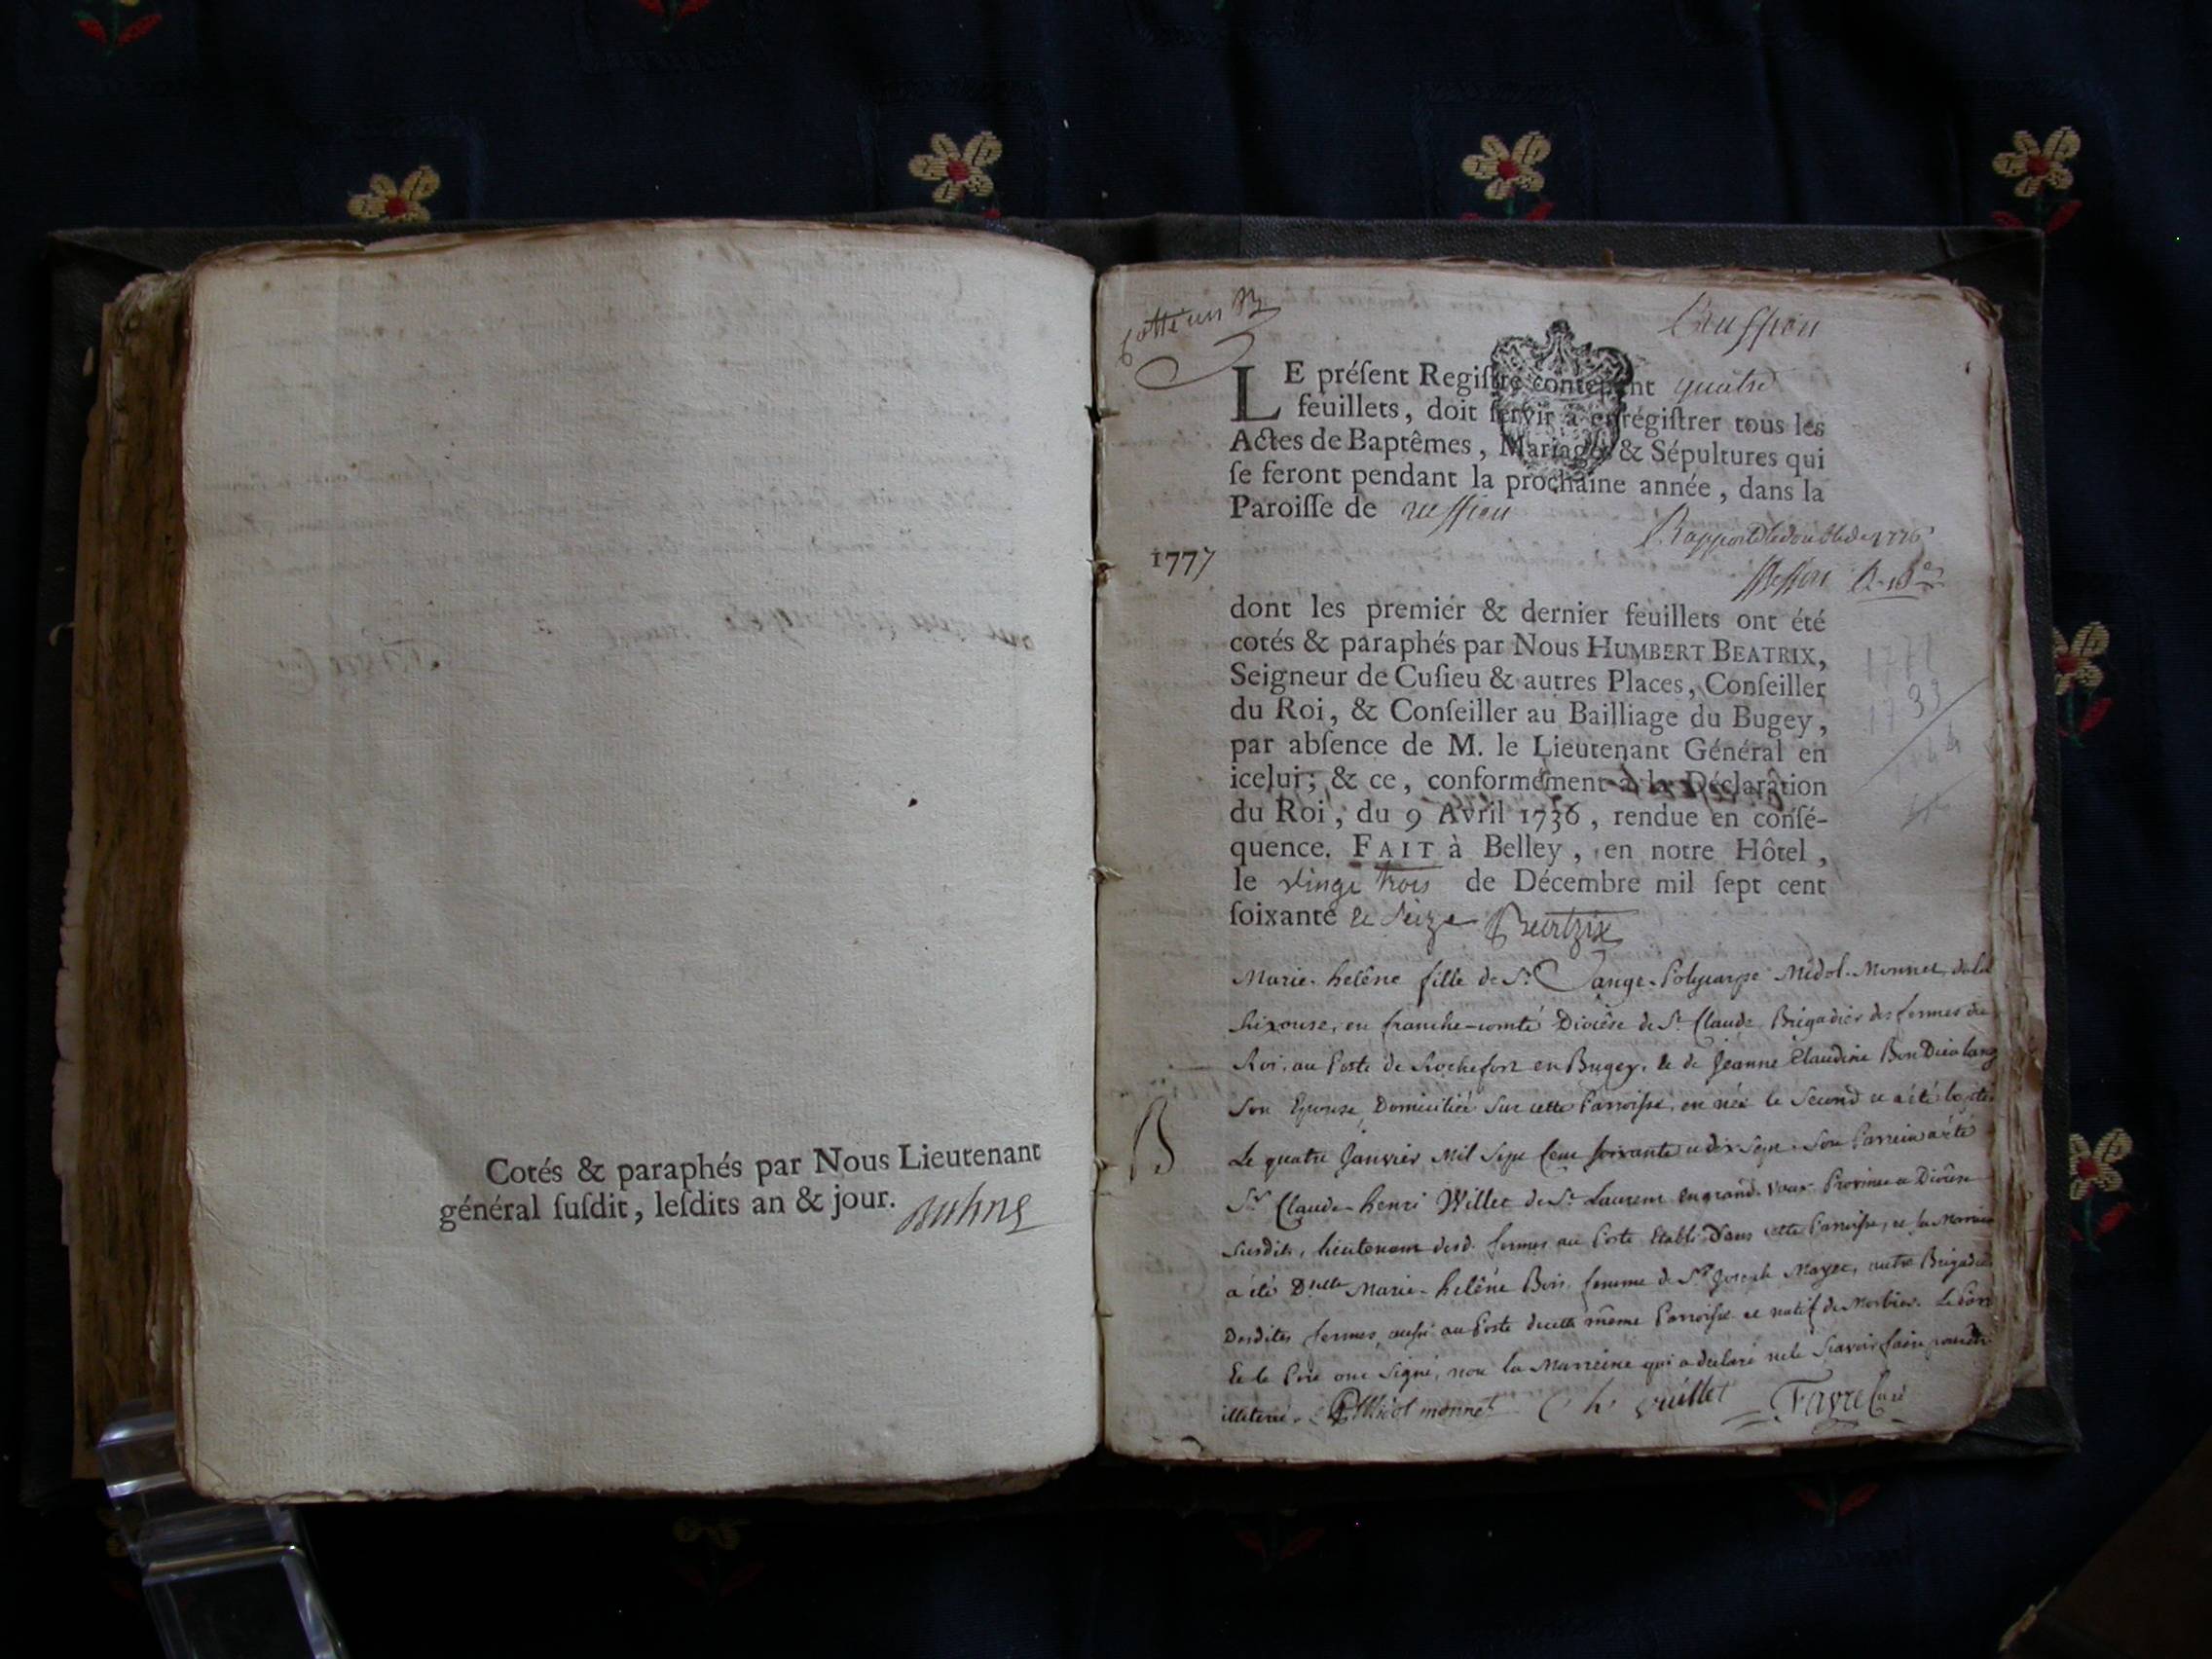 Cotés & paraphés par Nous Lieutenant
général ſuſdit, leſdits an & jour.
Cotté un
Ruffieu
LE préſent Regiſtre contenant quatre
feuillets, doit ſervir à enrégiſtrer tous les
Actes de Baptêmes, Mariages & Sépultures qui
ſe feront pendant la prochaine année, dans la
Paroiſſe de ruffieu
Rapporté le double de 1776
1777
dont les premier & dernier feuillets ont été
cotés & paraphés par Nous HUMBERT BEATRIX,
Seigneur de Cuſieu & autres Places, Conſeiller
du Roi, & Conſeiller au Bailliage du Bugey,
par abſence de M. le Lieutenant Général en
icelui; & ce, conformément à la Déclaration
du Roi, du 9 Avril 1736, rendue en conſé-
quence. FAIT à Belley, en notre Hôtel,
le vingt trois de Décembre mil ſept cent
ſoixante et seize Beatrix
Marie-helêne fille de Sr Ange-Polycarpe Midol-Monnet, de la
Rixouse, en franche-comté Diocêse de St Claude Brigadier des fermes du
Roi, au Poste de Rochefort en Bugey, et de Jeanne Claudine Bon
Son Epouse, Domiciliée Sur cette Parroisse, est née le Second et a été baptisée
B
Le quatre Janvier Mil Sept Cent soixante et dix Sept. Son Parrein a été
Sr Claude-henri Willet de St Laurent en grand-vaux Province et Diocêse
Susdits, lieutenant desd. fermes au Poste Etabli Dans cette Parroisse, et la Marreine
a été Dlle Marie-helêne Bon, femme de Sr Joseph Mayet, autre Brigadier
Desdites fermes, aussi au Poste de cette même Parroisse et natif de Morbier. Le Parrein
Et le Pere ont Signé, non la Marreine qui a declaré ne le Scavoir faire
illiterée. Midol monnet C h vuillet Favre Curé